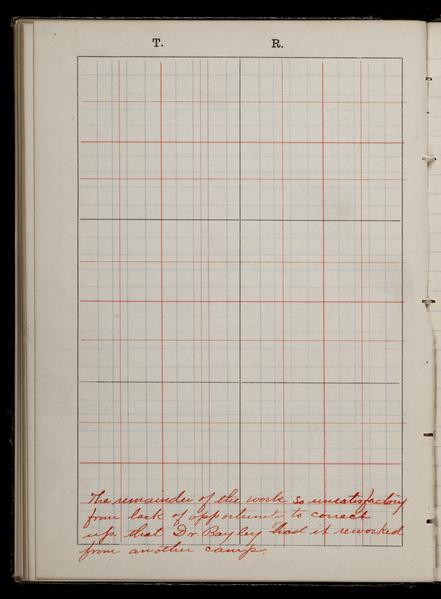 T. R.
The remainder of the work so unsatisfactory
from lack of opportunity to correct
up. that Dr Bayley had it reworked
from another camp.